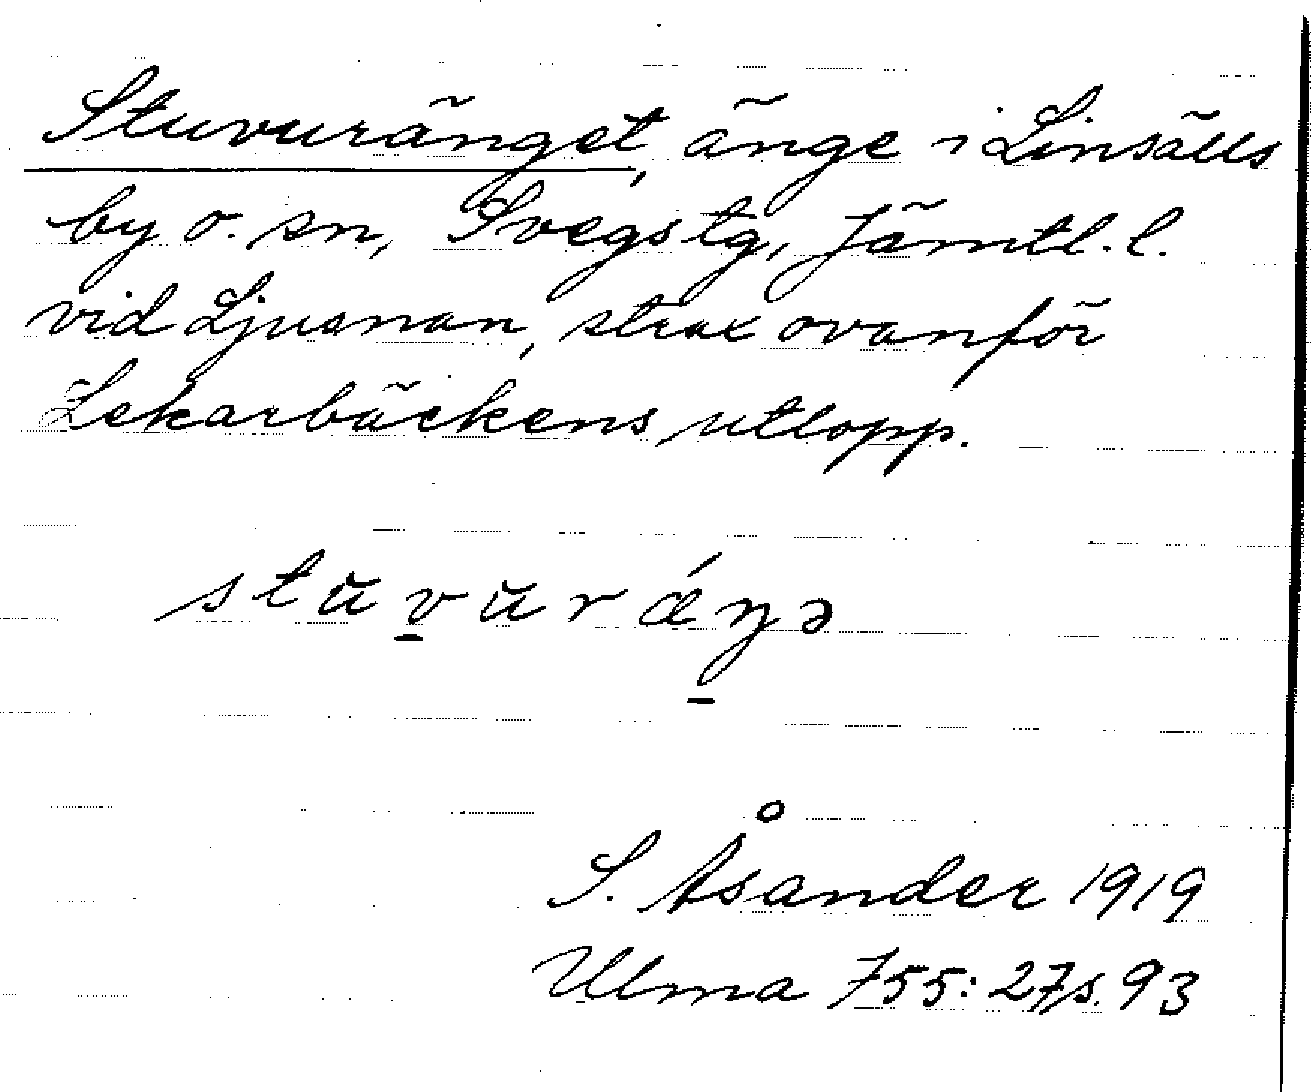 Stuvuränget, änge i Linsälls
by o. sn, Svegs tg, Jämtl. l.
vid Ljusnan, strax ovanför
Lekarbäckens utlopp.
stŭv̱ŭrǽŋ̱ə
S. Åsander 1919
Ulma 755:27 s. 93